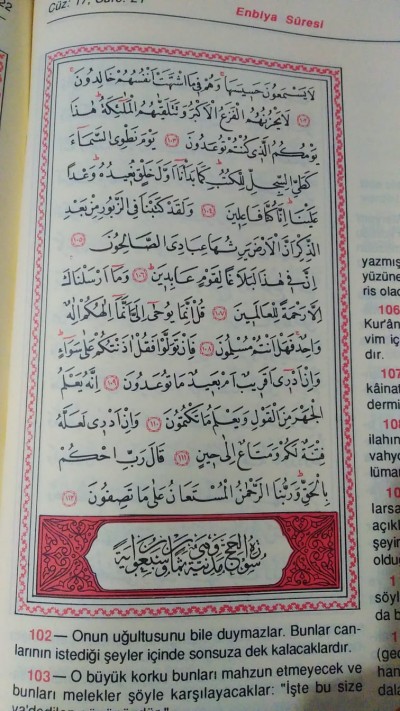 22
Cüz: 17, Sûre: 21
Enbiya Sûresi
لَا يَسْمَعُونَ حَسِيسَهَا وَهُمْ فِي مَا اشْتَهَتْ اَنْفُسُهُمْ خَالِدُونَ
﴿١٠٢﴾ لَا يَحْزُنُهُمُ الْفَزَعُ الْاَكْبَرُ وَتَتَلَقّٰيهُمُ الْمَلٰٓئِكَةُ هٰذَا
يَوْمُكُمُ الَّذِي كُنْتُمْ تُوعَدُونَ ﴿١٠٣﴾ يَوْمَ نَطْوِي السَّمَاءَ
كَطَيِّ السِّجِلِّ لِلْكُتُبِ كَمَا بَدَأْنَا اَوَّلَ خَلْقٍ نُعِيدُهُ وَعْدًا
عَلَيْنَا اِنَّا كُنَّا فَاعِلِينَ ﴿١٠٤﴾ وَلَقَدْ كَتَبْنَا فِي الزَّبُورِ مِنْ بَعْدِ
الذِّكْرِ اَنَّ الْاَرْضَ يَرِثُهَا عِبَادِيَ الصَّالِحُونَ ﴿١٠٥﴾
اِنَّ فِي هٰذَا لَبَلَاغًا لِقَوْمٍ عَابِدِينَ ﴿١٠٦﴾ وَمَا اَرْسَلْنَاكَ
اِلَّا رَحْمَةً لِلْعَالَمِينَ ﴿١٠٧﴾ قُلْ اِنَّمَا يُوحٰى اِلَيَّ اَنَّمَا اِلٰهُكُمْ اِلٰهٌ
وَاحِدٌ فَهَلْ اَنْتُمْ مُسْلِمُونَ ﴿١٠٨﴾ فَاِنْ تَوَلَّوْا فَقُلْ اٰذَنْتُكُمْ عَلٰى سَوَاءٍ
وَاِنْ اَدْرِي اَقَرِيبٌ اَمْ بَعِيدٌ مَا تُوعَدُونَ ﴿١٠٩﴾ اِنَّهُ يَعْلَمُ
الْجَهْرَ مِنَ الْقَوْلِ وَيَعْلَمُ مَا تَكْتُمُونَ ﴿١١٠﴾ وَاِنْ اَدْرِي لَعَلَّهُ
فِتْنَةٌ لَكُمْ وَمَتَاعٌ اِلٰى حِينٍ ﴿١١١﴾ قَالَ رَبِّ احْكُمْ
بِالْحَقِّ وَرَبُّنَا الرَّحْمٰنُ الْمُسْتَعَانُ عَلٰى مَا تَصِفُونَ ﴿١١٢﴾
سُورَةُ الْحَجِّ مَدَنِيَّةٌ وَهِيَ ثَمَانٍ وَسَبْعُونَ اٰيَةً
102 — Onun uğultusunu bile duymazlar. Bunlar can-
larının istediği şeyler içinde sonsuza dek kalacaklardır.
103 — O büyük korku bunları mahzun etmeyecek ve
bunları melekler şöyle karşılayacaklar: "İşte bu size
yazmış
yüzüne
ris olac
106
Kur'ân
vim iç
dır.
107
kâinat
dermi
108
ilahın
vahyo
lüman
larsa
açıkl
şeyin
oldu
söyl
da b
(geç